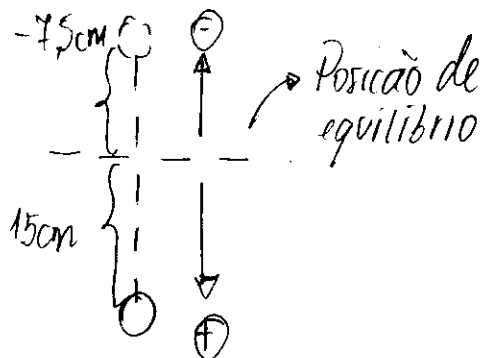 -7,5cm
-
Posicão de
equilíbrio
15cm
+